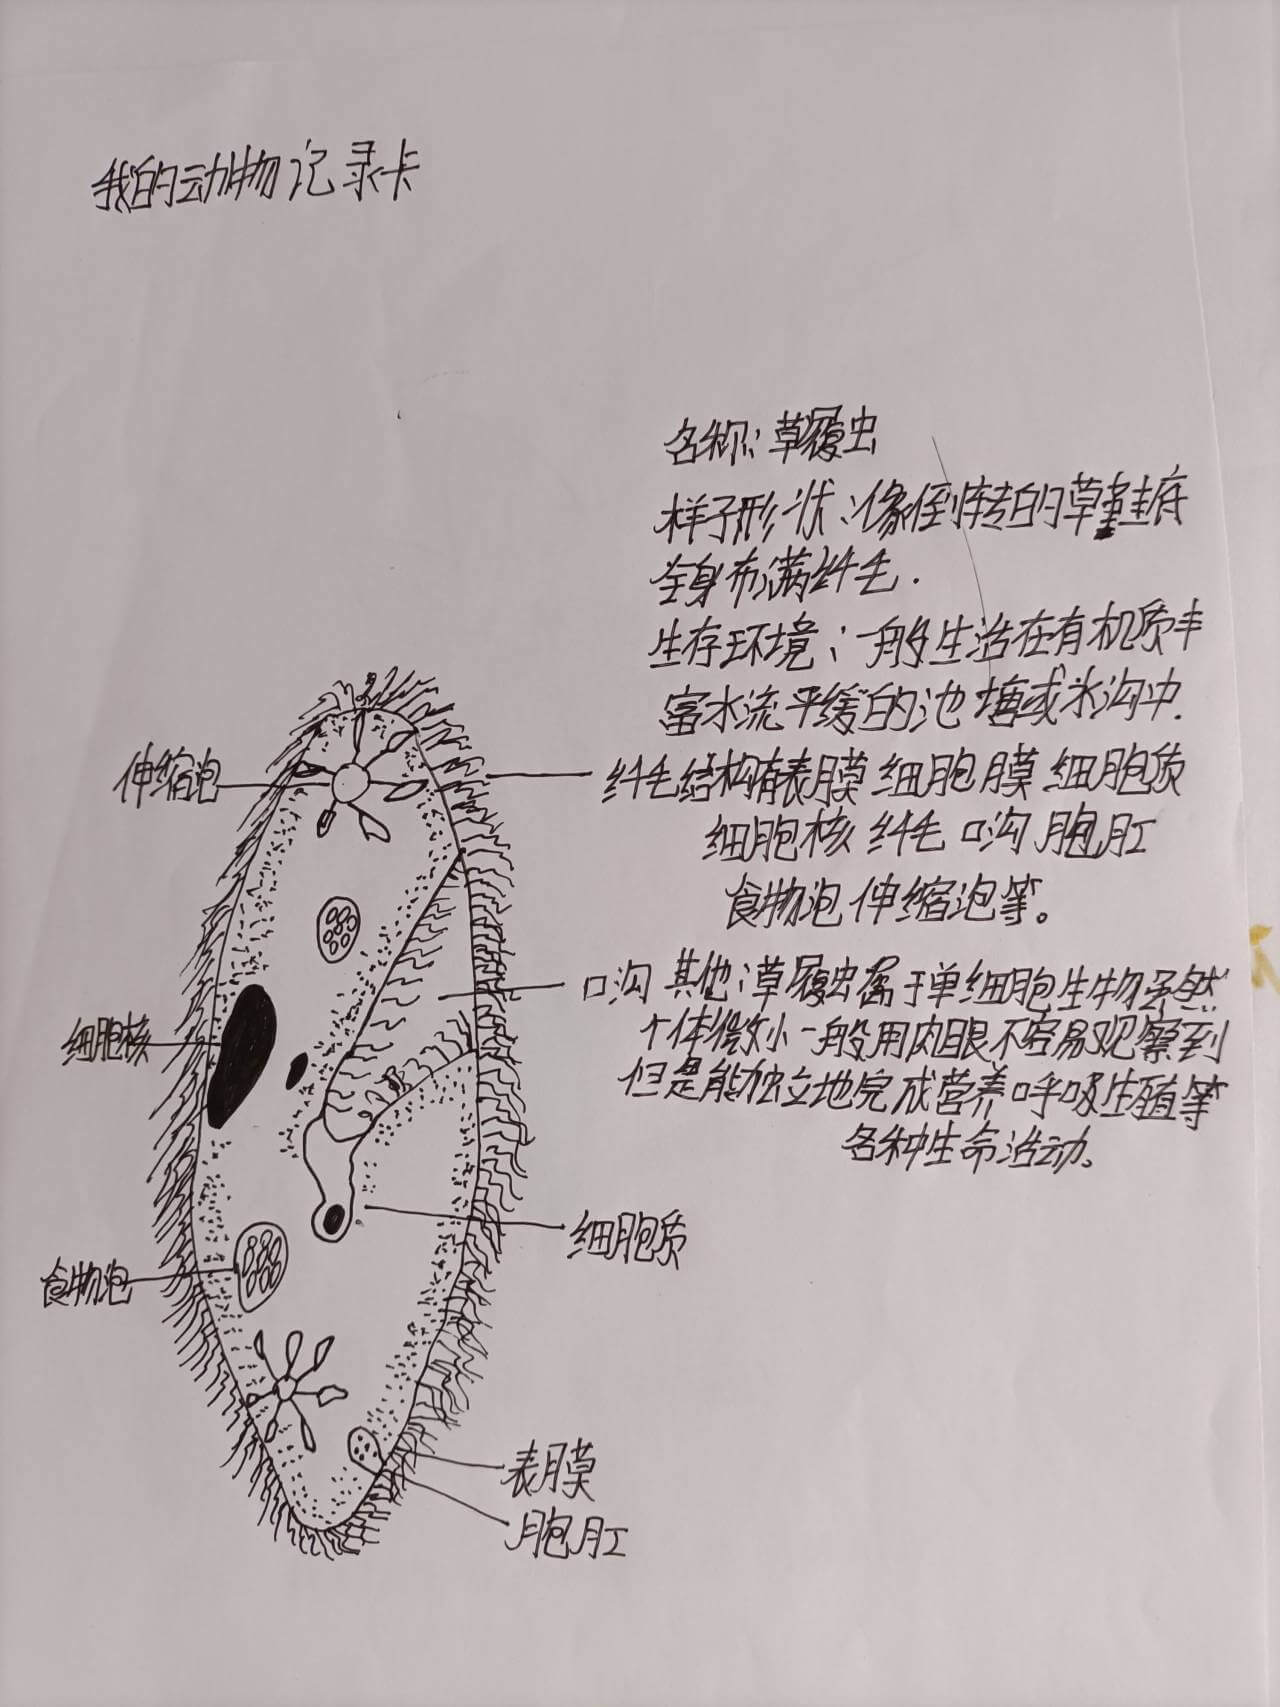 我的动物记录卡
名称:草履虫
样子形状:像倒转的草鞋底
全身布满纤毛.
生存环境:一般生活在有机质丰
富水流平缓的池塘或水沟中.
伸缩泡
纤毛 结构有表膜 细胞膜 细胞质
细胞核 纤毛 口沟 胞肛
食物泡 伸缩泡等。
口沟 其他:草履虫属于单细胞生物虽然
个体微小一般用肉眼不容易观察到
但是能独立地完成营养呼吸生殖等
各种生命活动。
细胞核
细胞质
食物泡
表膜
胞肛